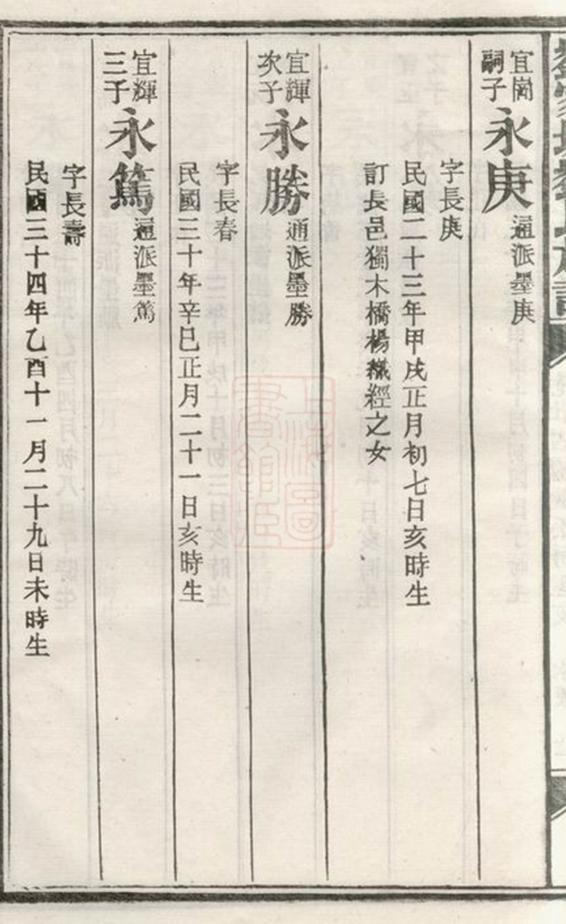 宜崗嗣子永庚通派墨庚
字長庚
民國二十三年甲戌正月初七日亥時生
訂長邑獨木橋楊經之女
宜輝次子永勝通派墨勝
字長春
民國三十年辛巳正月二十一日亥時生
宜輝三子永篤通派墨篤
字長壽
民國三十四年乙酉十一月二十九日未時生